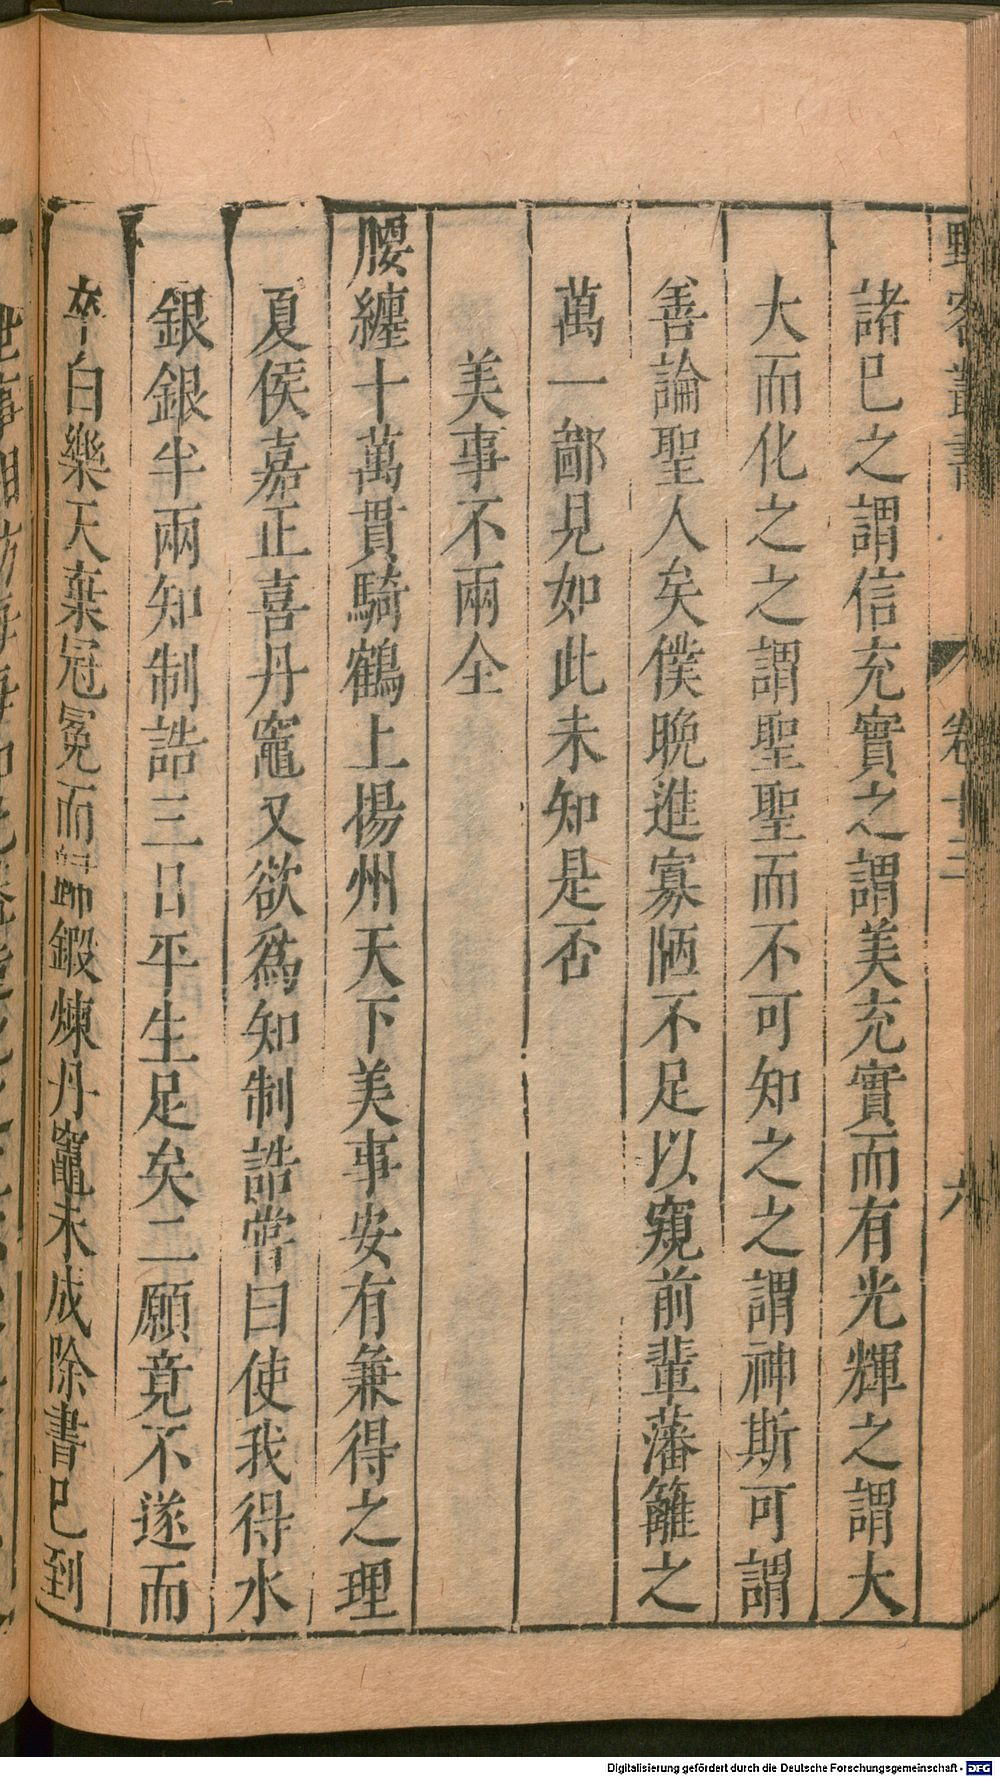 野客叢書 卷十三 六
諸已之謂信充實之謂美充實而有光輝之謂大
大而化之之謂聖聖而不可知之之謂神斯可謂
善論聖人矣僕晚進寡陋不足以窺前輩藩籬之
萬一鄙見如此未知是否
美事不兩全
腰纏十萬貫騎鶴上揚州天下美事安有兼得之理
夏侯嘉正喜丹竈又欲爲知制誥嘗曰使我得水
銀銀半兩知制誥三日平生足矣二願竟不遂而
卒白樂天棄冠冕而歸鍛煉丹竈未成除書已到
Digitalisierung gefördert durch die Deutsche Forschungsgemeinschaft - DFG